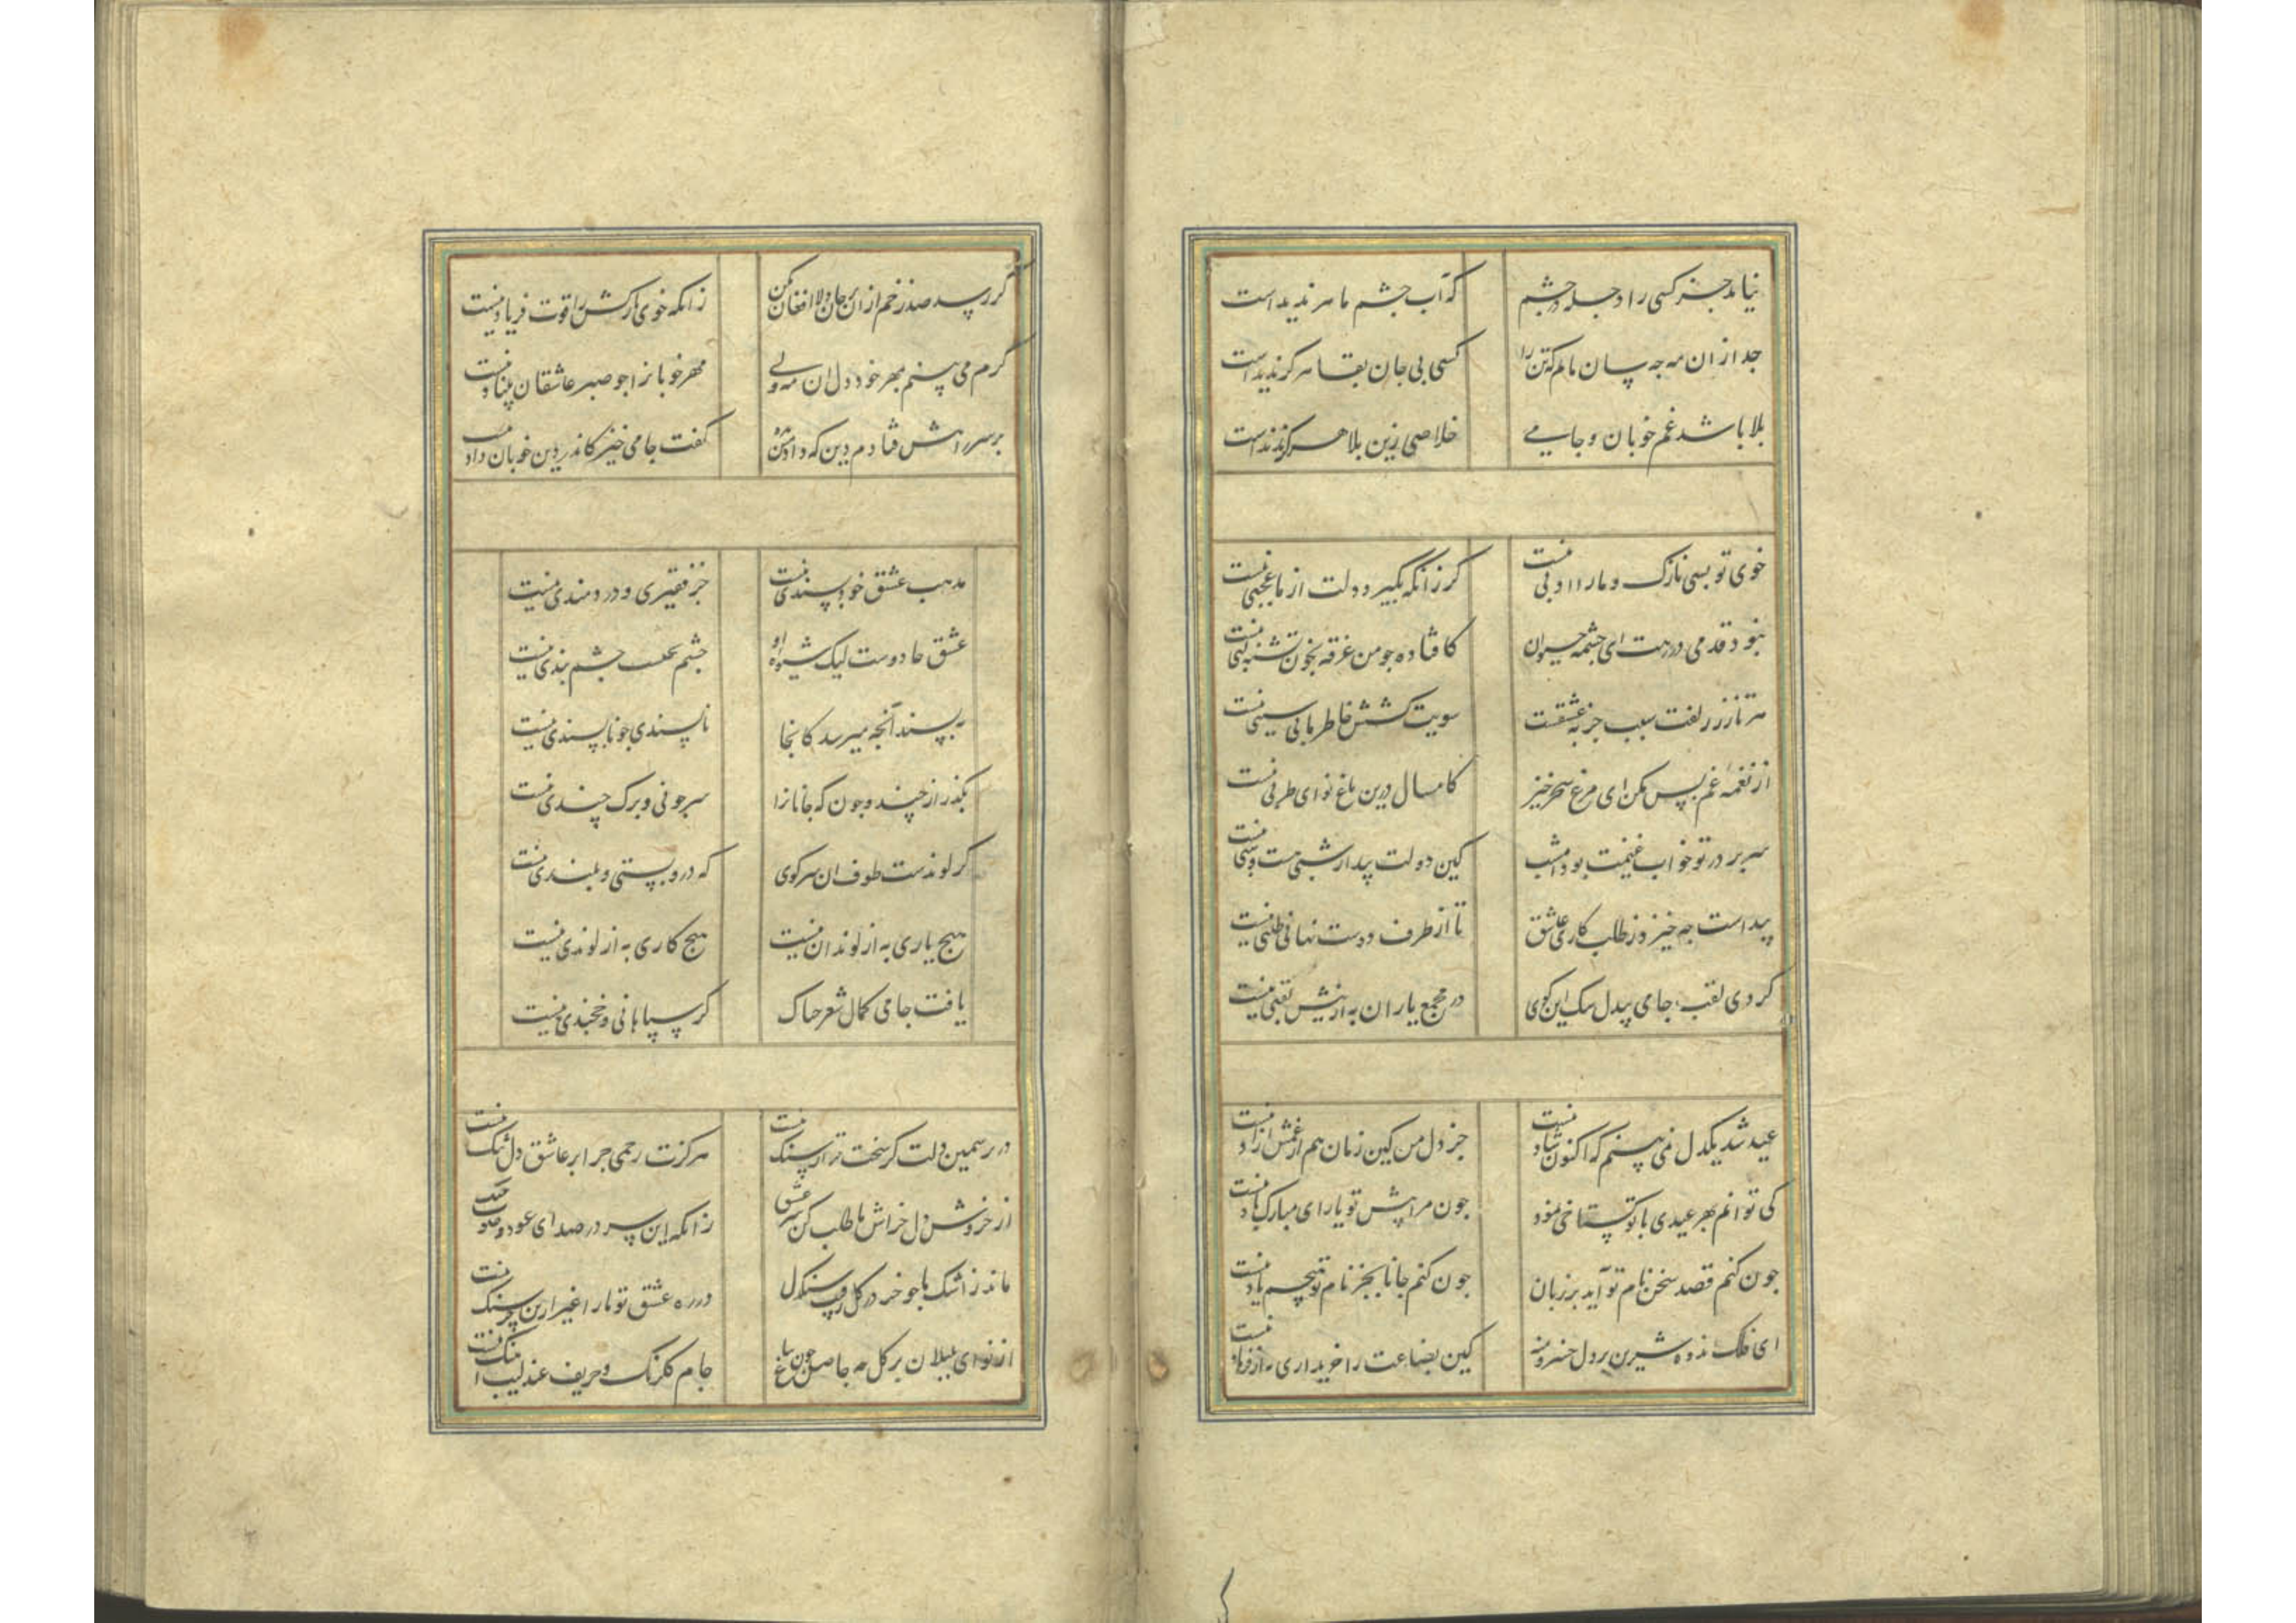 نیاید جز کسی را دجله در چشم که آب چشم ما هر ندیدست
جدا از ان مه جه سان مانم که تن را کسی بی جان بقا هرکز ندیدست
بلا باشد غم خوبان و جامی خلاصی زین بلا هرکز ندیدست
خوی تو بسی نازک و ما را ادبی نیست کر زانکه بکیرد دلت از ما عجبی نیست
نبود قدمی در رهت ای جشمه حیوان کافتاده جو من غرقه بخون تشنه لبی نیست
هر تار ز زلفت سبب جذبه عشقست سویت کشش خاطر ما بی سببی نیست
از نغمه غم بس مکن ای مرغ سحرخیز کامسال درین باغ نوای طربی نیست
سر بر در تو خواب غنیمت بود امشب کین دولت بیدار شبی هست و شبی نیست
پیداست جه خیزد ز طلب کاری عاشق تا از طرف دوست نهانی طلبی نیست
کردی لقب جامی بیدل سک این کوی در مجمع یاران به ازینش لقبی نیست
عید شد یکدل نمی بینم که اکنون شاد نیست جز دل من کین زمان هم از غمش ازاد نیست
کی توانم بهر عیدی با تو کستاخی نمود جون مرا پیش تو یارای مبارک باد نیست
جون کنم قصد سخن نام تو آید بر زبان جون کنم جانا بجز نام تو هیچم یاد نیست
ای فلک اندوه شیرین بر دل خسرو منه کین بضاعت را خریداری به از فرهاد نیست
کر رسد صد زخم از ان بر جان دلا افغان مکن زانکه خوی نازکش را قوت فریاد نیست
کرم می بینم بمهر خود دل ان مه ولی مهر خوبانرا جو صبر عاشقان بنیاد نیست
بر سر راهش فتادم دین که داد من بده کفت جامی خیز کاندر دین خوبان داد نیست
مذهب عشق خودپسندی نیست جز فقیری و دردمندی نیست
عشق جادوست لیک شیوه او جشم بخشیست جشم بندی نیست
بپسند آنجه میرسد کانجا ناپسندی جو ناپسندی نیست
بکذر از چند و جون که جانانرا سر جونی و برک چندی نیست
کر لوندست طوف ان سر کوی که درو پستی و بلندی نیست
هیج یاری به از لوندان نیست هیج کاری به از لوندی نیست
یافت جامی کمال شعر جه باک کر سپاهانی و خجندی نیست
در بر سیمین دلت کر سخت تر از سنک نیست هرکزت رحمی جرا بر عاشق دل تنک نیست
از خروش دل خراش ما طلب کن سر عشق زانکه این سر در صدای عود و صوت چنک نیست
ماند ز اشک ما جو خر در کل رقیب سنکدل در ره عشق تو ما را غیر ازین خرسنک نیست
از نوای بلبلان بر کل جه حاصل جون بباغ جام کلرنک و حریف عندلیب آهنک نیست